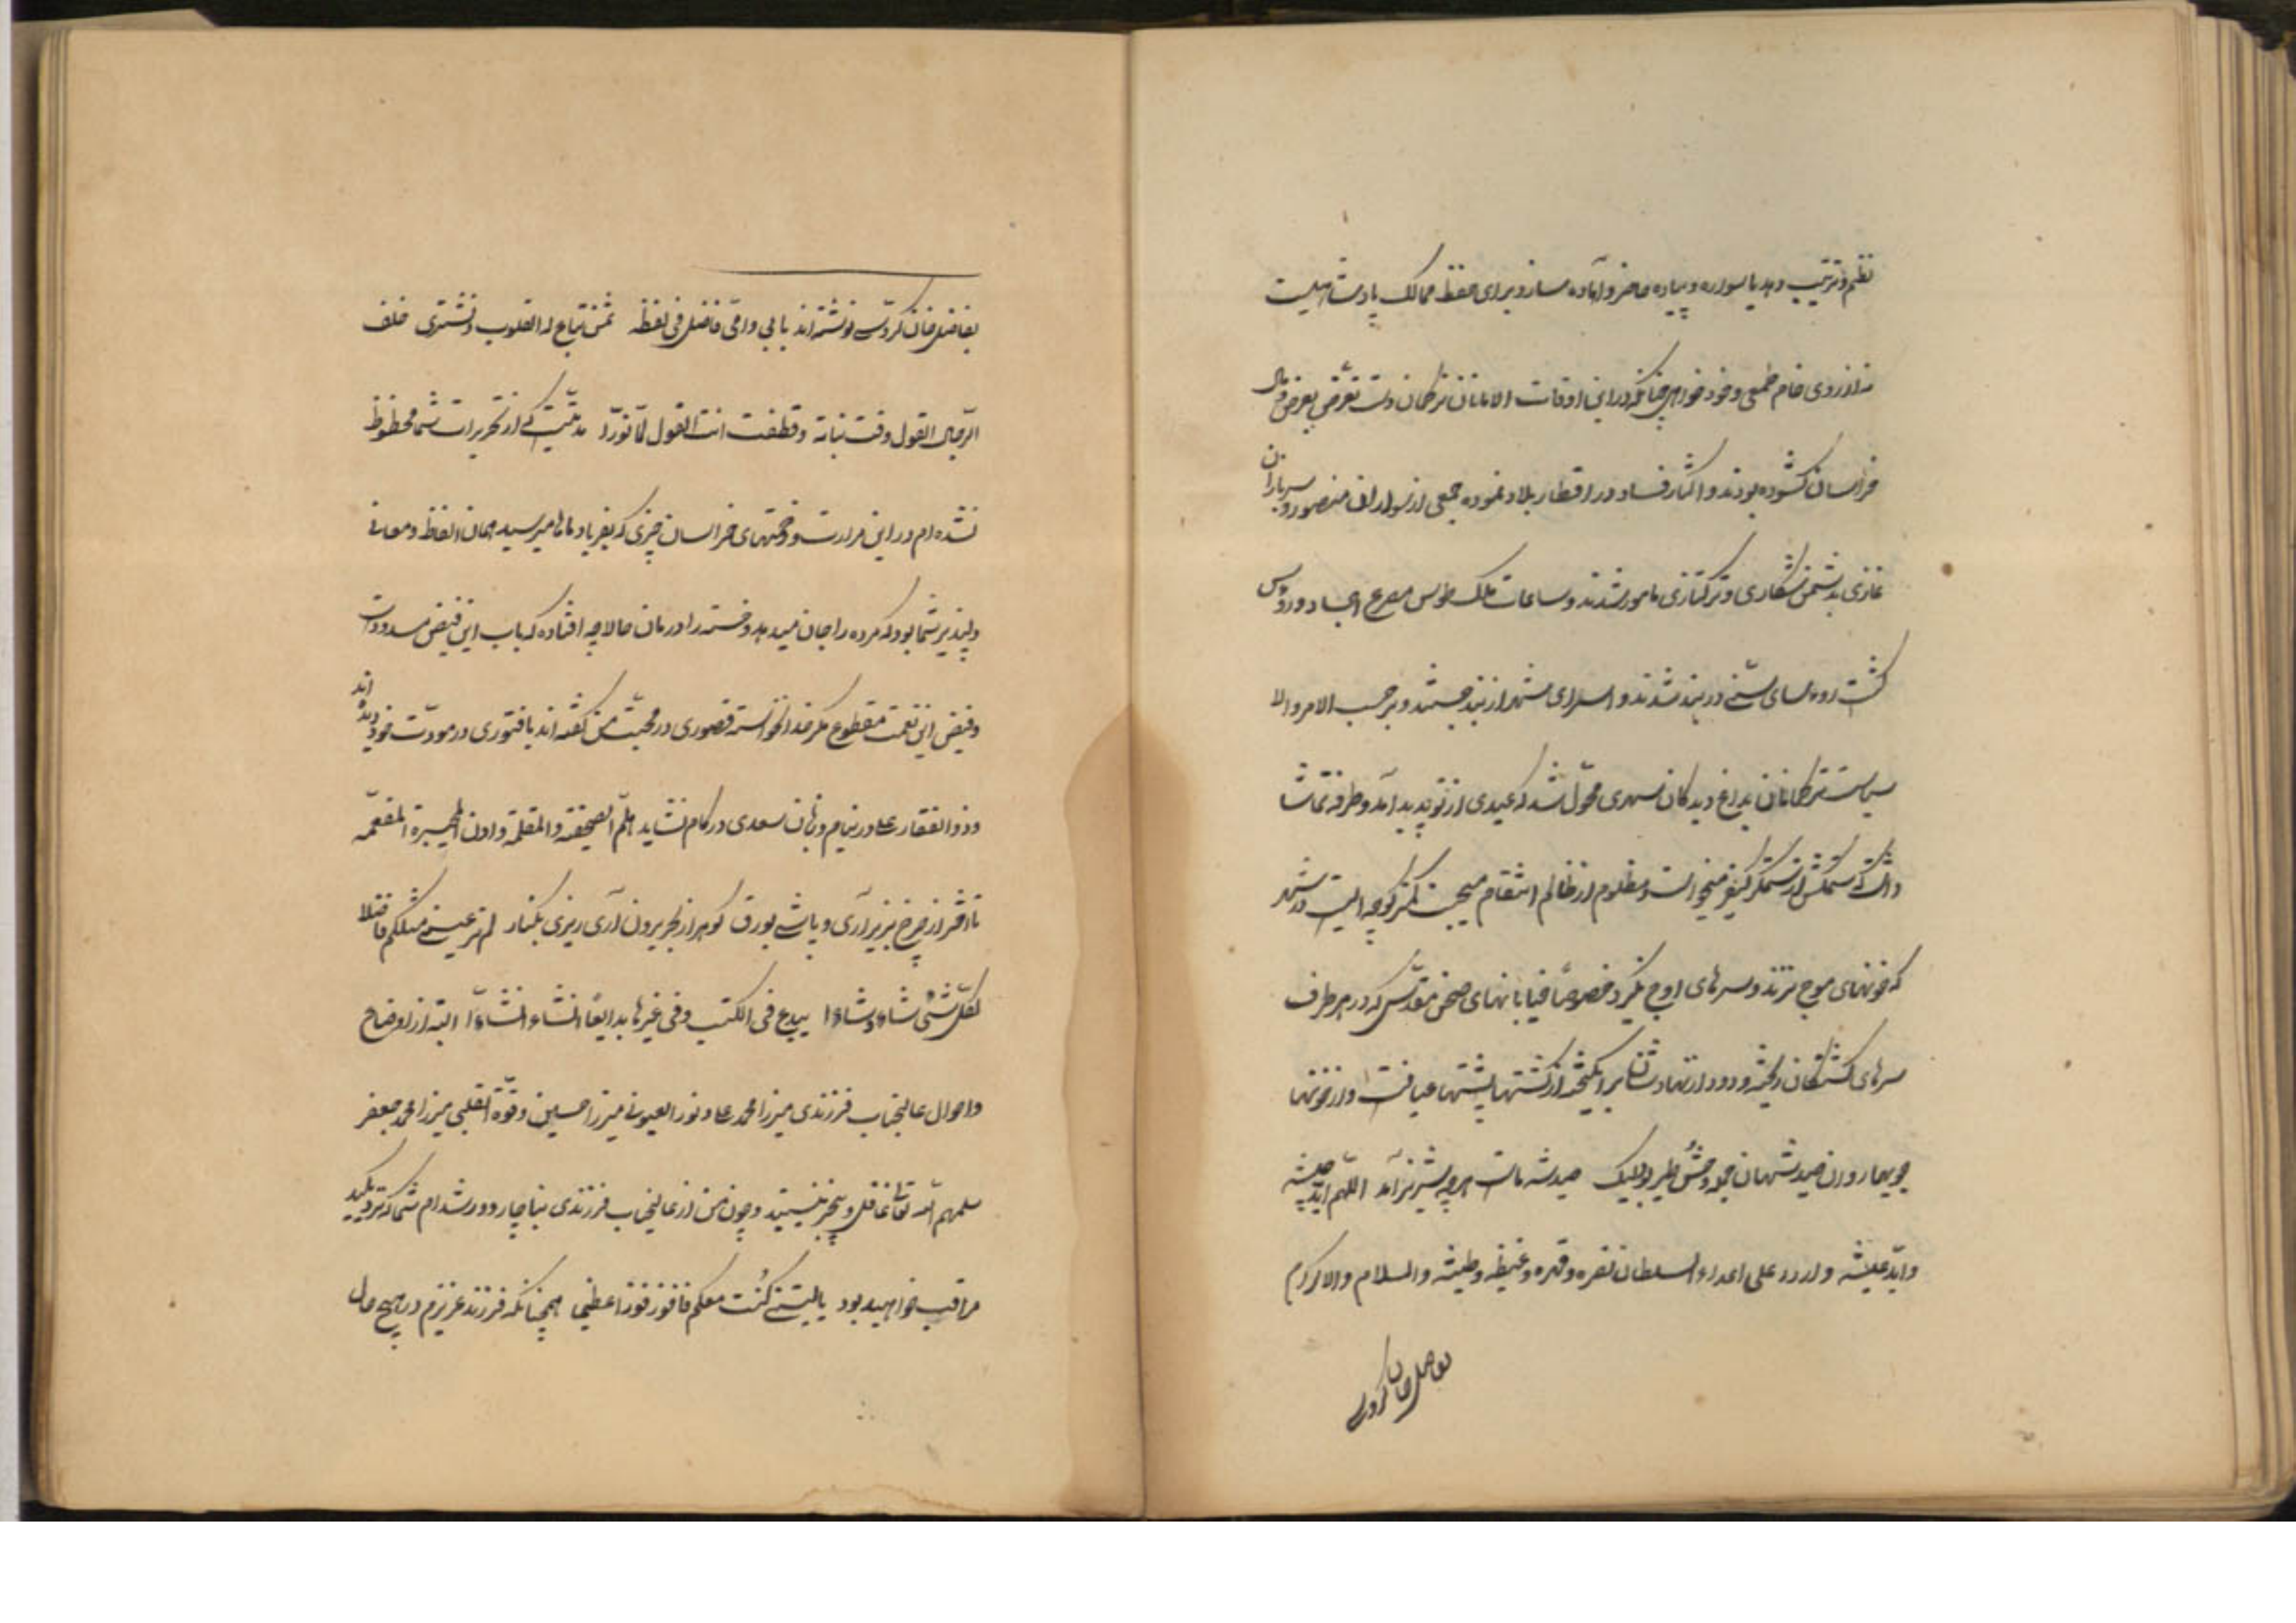 نظم و ترتیب دهد یا سواره و پیاده حاضر و آماده سازد برای حفظ ممالک پادشاهیست
نه از روی خام طمعی و خودخواهی چنانکه در این اوقات الامانان ترکمان دست تعرض بعرض و مال
خراسان گشوده بودند و آثار فساد در اقطار بلاد نموده جمعی از سواران منصور و سربازان
غازی بدشمن شکاری و ترکتازی مامور شدند و ساحات ملک طوس مصرع اجساد و رؤس
گشت روسای در بند شدند و اسرای مشهد از بند جستند و بر حسب الامر والا
سیاست ترکمانان محول شد که عیدی از نو پدید آمد و طرفه تماشا
داشت که ستمکش از ستمگر کیفر میخواست و مظلوم از ظالم انتقام میجست کمتر کوچه ایست در مشهد
که خونهای موج نزند و سرهای اوج نگیرد خصوصا خیابانهای صحن مقدس که در هر طرف
سرهای کشتگان ریخته و دود از نهادشان برانگیخته از کشتها پشتها میافت و از خونها
جویها روان صید شهان بود وحش و طیر ولیک صید شه ماست هر چه شیر نر آمد اللهم اید جیشه
و ابد عیشه و اردد علی اعداء السلطان نصره و قهره و غیظه و طیشه والسلام والاکرام
بفاضل خان گروسی
بفاضل خان گروسی نوشته‌اند بابی و امی فاضل فی لفظه ثمن تباع له القلوب و تشتری خلف
الرجال القول وقت نباته و قطفت انت القول لما نورا مدتیست که از تحریرات شما محظوظ
نشده‌ام در این مرارت و زحمتهای خراسان چیزی که بفریاد ماها میرسید همان الفاظ و معانی
دلپذیر شما بود که مرده را جان میدهد و خسته را درمان حالا چه افتاده که باب این فیض مسدود است
و فیض این نعمت مقطوع مگر خدا نخواسته قصوری در محبت من گفته‌اند یا فتوری در مودت خود دیده‌اند
و ذوالفقار علی در نیام و زبان سعدی در کام نشاید هلم الصحیفه والمقلمة و ادن المحبرة المفعمه
تا اختر از چرخ بزیر آری و پاشی بورق گوهر از بحر برون آری ریزی بکنار لم تر عینی مثلکم فاضلا
لکل شئ شاء و شاؤا یبدع فی الکتب و فی غیرها بدایعا انشاء انشاؤا البته از اوضاع
و احوال عالیجناب فرزندی میرزا محمد علی و نور العیون میرزا حسین و قوة القلبی میرزا محمد جعفر
سلمهم الله تعالی غافل و بیخبر نیستید و چون من از عالیجناب فرزندی بناچار دور شده‌ام شما که نزدیکید
مراقب خواهید بود یا لیتنی کنت معکم فافوز فوزا عظیما همچنانکه فرزند عزیزم در هیچ حال